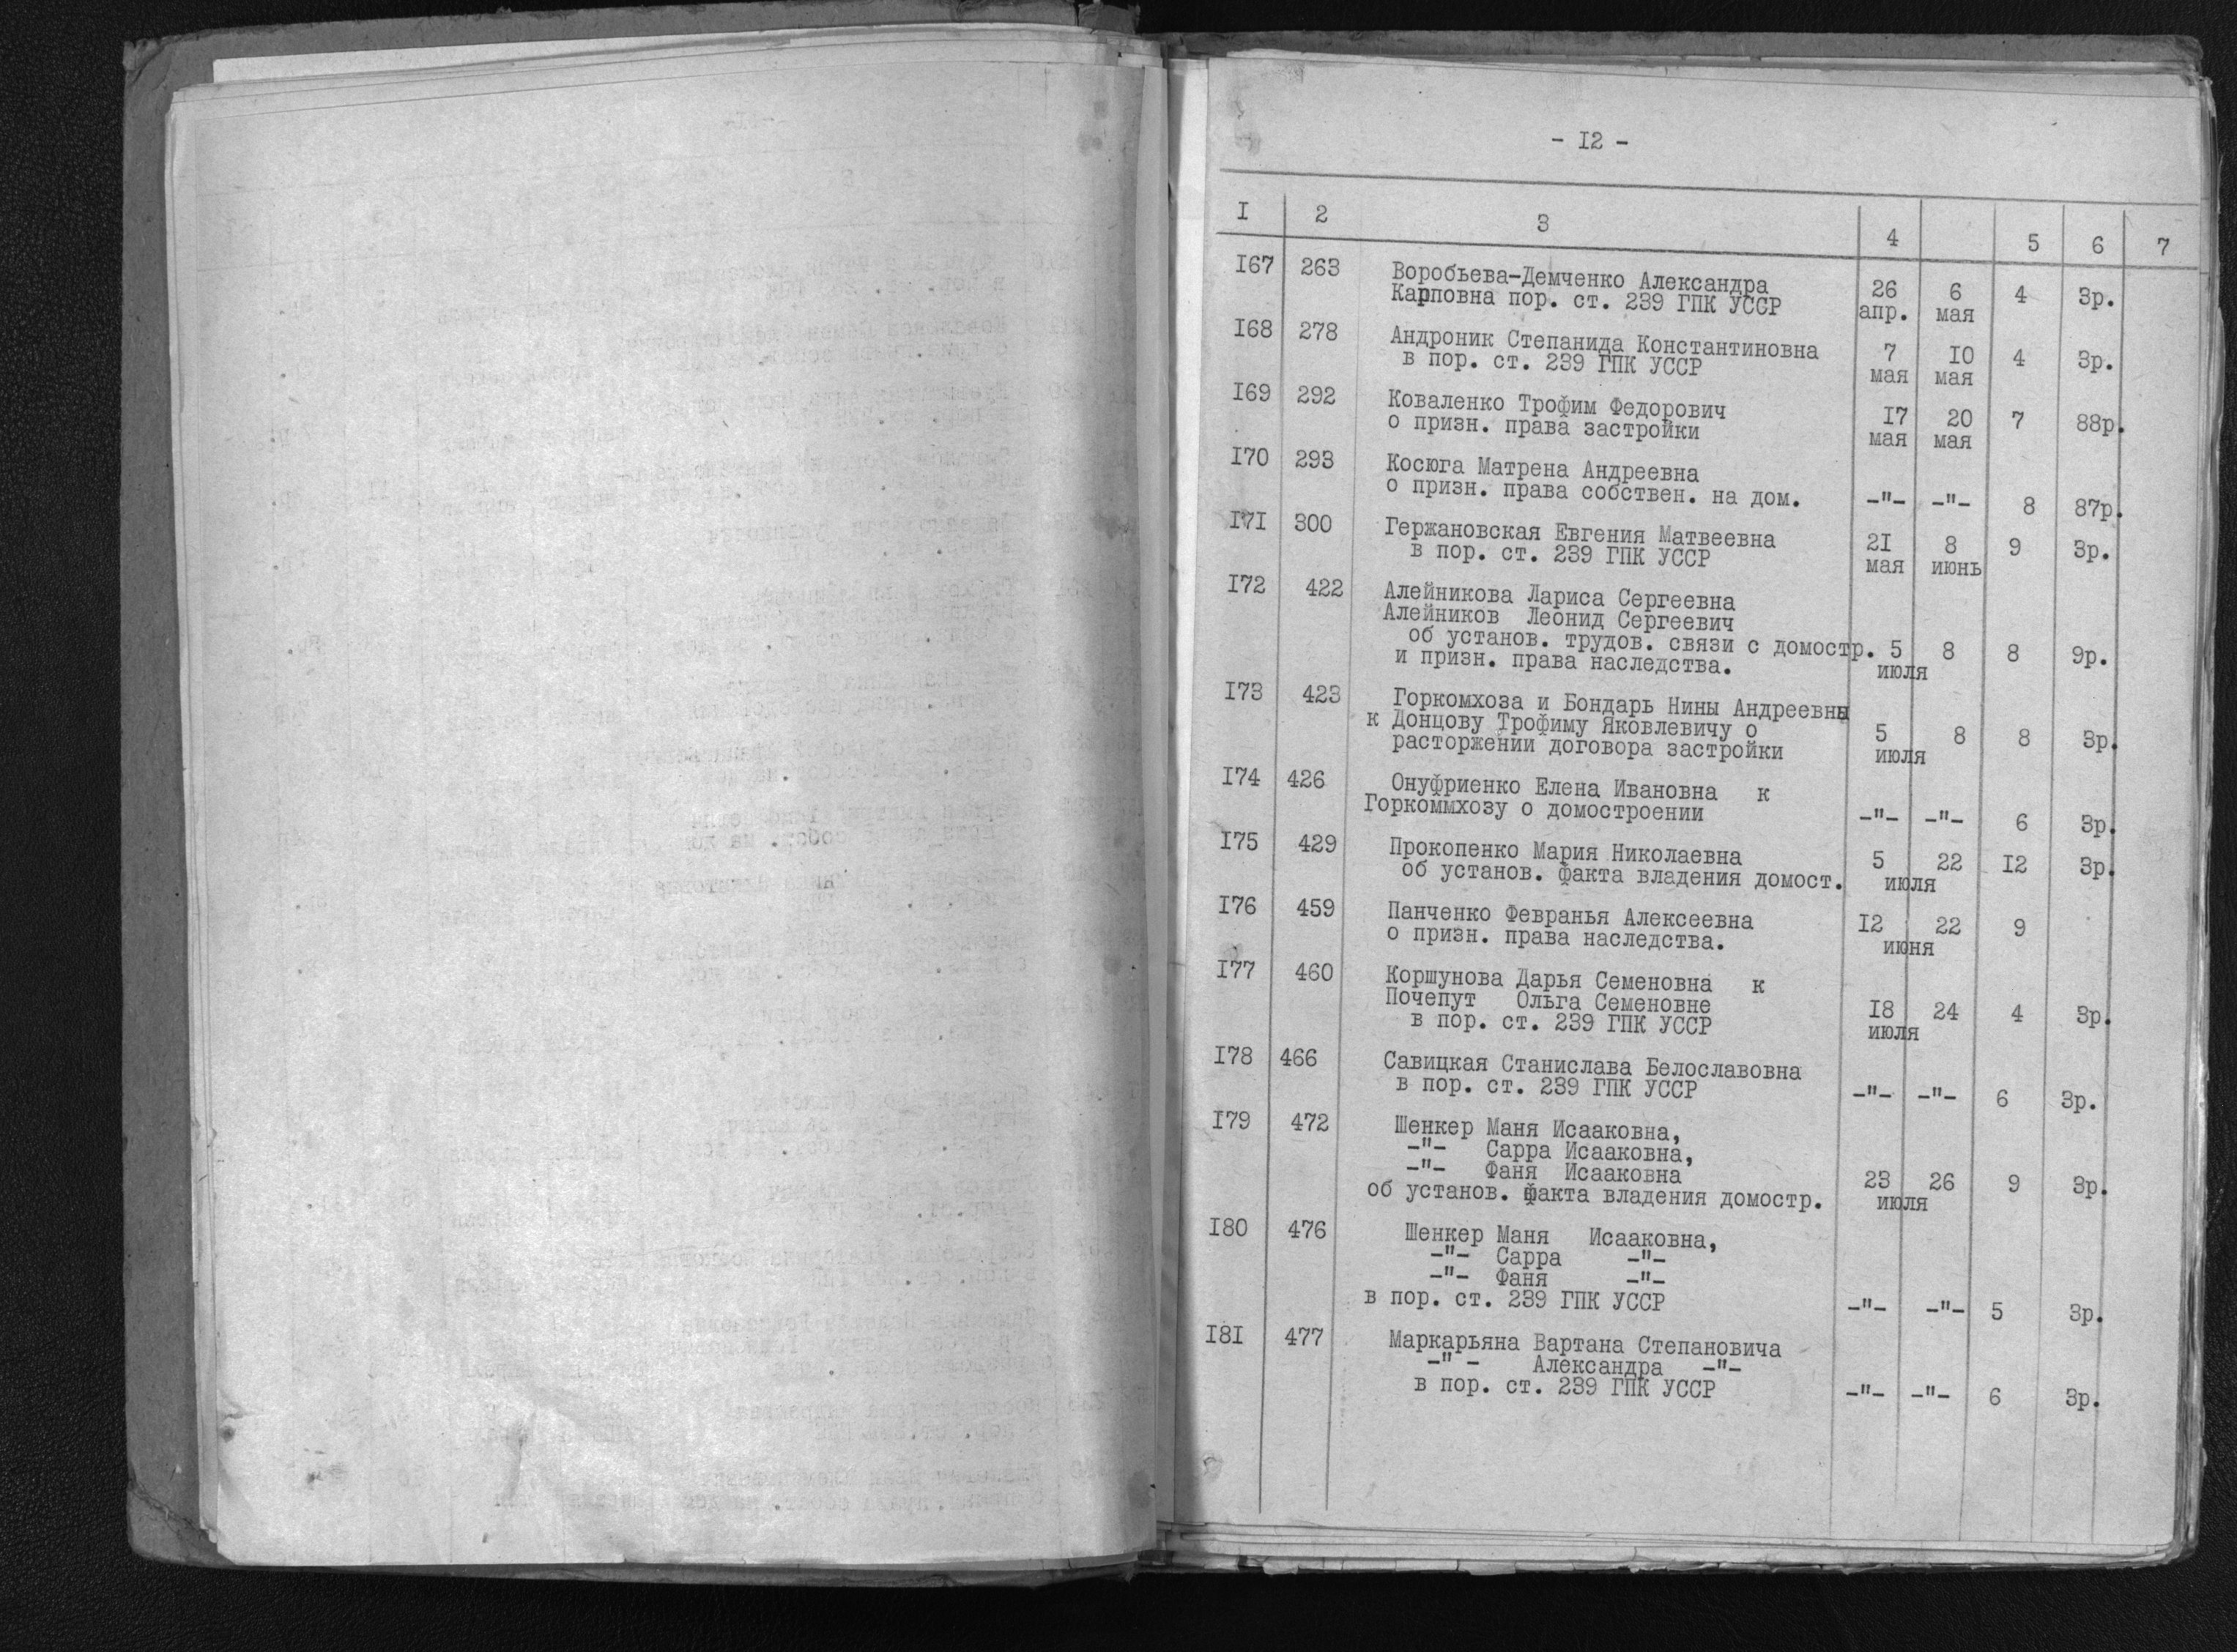 - I2 -
I 2 3 4 5 6 7
I67 263 Воробьева-Демченко Александра 26 6 4 3р.
Карповна пор. ст. 239 ГПК УССР апр. мая
I68 278 Андроник Степанида Константиновна 7 IO 4 3р.
в пор. ст. 239 ГПК УССР мая мая
I69 292 Коваленко Трофим Федорович I7 20 7 88р.
о призн. права застройки мая мая
I70 293 Косюга Матрена Андреевна
о призн. права собствен. на дом. -"- -"- 8 87р.
I7I 300 Гержановская Евгения Матвеевна 2I 8 9 3р.
в пор. ст. 239 ГПК УССР мая июнь
I72 422 Алейникова Лариса Сергеевна
Алейников Леонид Сергеевич
об установ. трудов. связи с домостр. 5 8 8 9р.
и призн. права наследства. июля
I73 423 Горкомхоза и Бондарь Нины Андреевны
к Донцову Трофиму Яковлевичу о 5 8 8 3р.
расторжении договора застройки июля
I74 426 Онуфриенко Елена Ивановна к
Горкоммхозу о домостроении -"- -"- 6 3р.
I75 429 Прокопенко Мария Николаевна 5 22 I2 3р.
об установ. факта владения домост. июля
I76 459 Панченко Февранья Алексеевна I2 22 9
о призн. права наследства. июня
I77 460 Коршунова Дарья Семеновна к
Почепут Ольга Семеновне I8 24 4 3р.
в пор. ст. 239 ГПК УССР июля
I78 466 Савицкая Станислава Белославовна
в пор. ст. 239 ГПК УССР -"- -"- 6 3р.
I79 472 Шенкер Маня Исааковна,
-"- Сарра Исааковна,
-"- Фаня Исааковна 23 26 9 3р.
об установ. факта владения домостр. июля
I80 476 Шенкер Маня Исааковна,
-"- Сарра -"-
-"- Фаня -"-
в пор. ст. 239 ГПК УССР -"- -"- 5 3р.
I8I 477 Маркарьяна Вартана Степановича
-" - Александра -"-
в пор. ст. 239 ГПК УССР -"- -"- 6 3р.